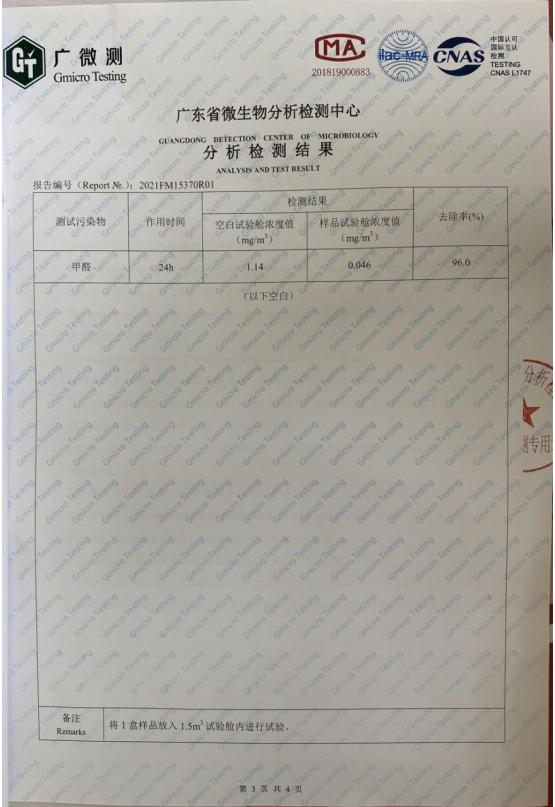 广微测
Gmicro Testing
MA
201819000883
ilac-MRA
CNAS
中国认可
国际互认
检测
TESTING
CNAS L1747
广东省微生物分析检测中心
GUANGDONG DETECTION CENTER OF MICROBIOLOGY
分析检测结果
ANALYSIS AND TEST RESULT
报告编号（Report №.）：2021FM15370R01
测试污染物 作用时间 检测结果 去除率(%)
空白试验舱浓度值（mg/m³） 样品试验舱浓度值（mg/m³）
甲醛 24h 1.14 0.046 96.0
（以下空白）
分析检
测专用
备注
Remarks
将 1 盒样品放入 1.5m³ 试验舱内进行试验。
第 3 页 共 4 页